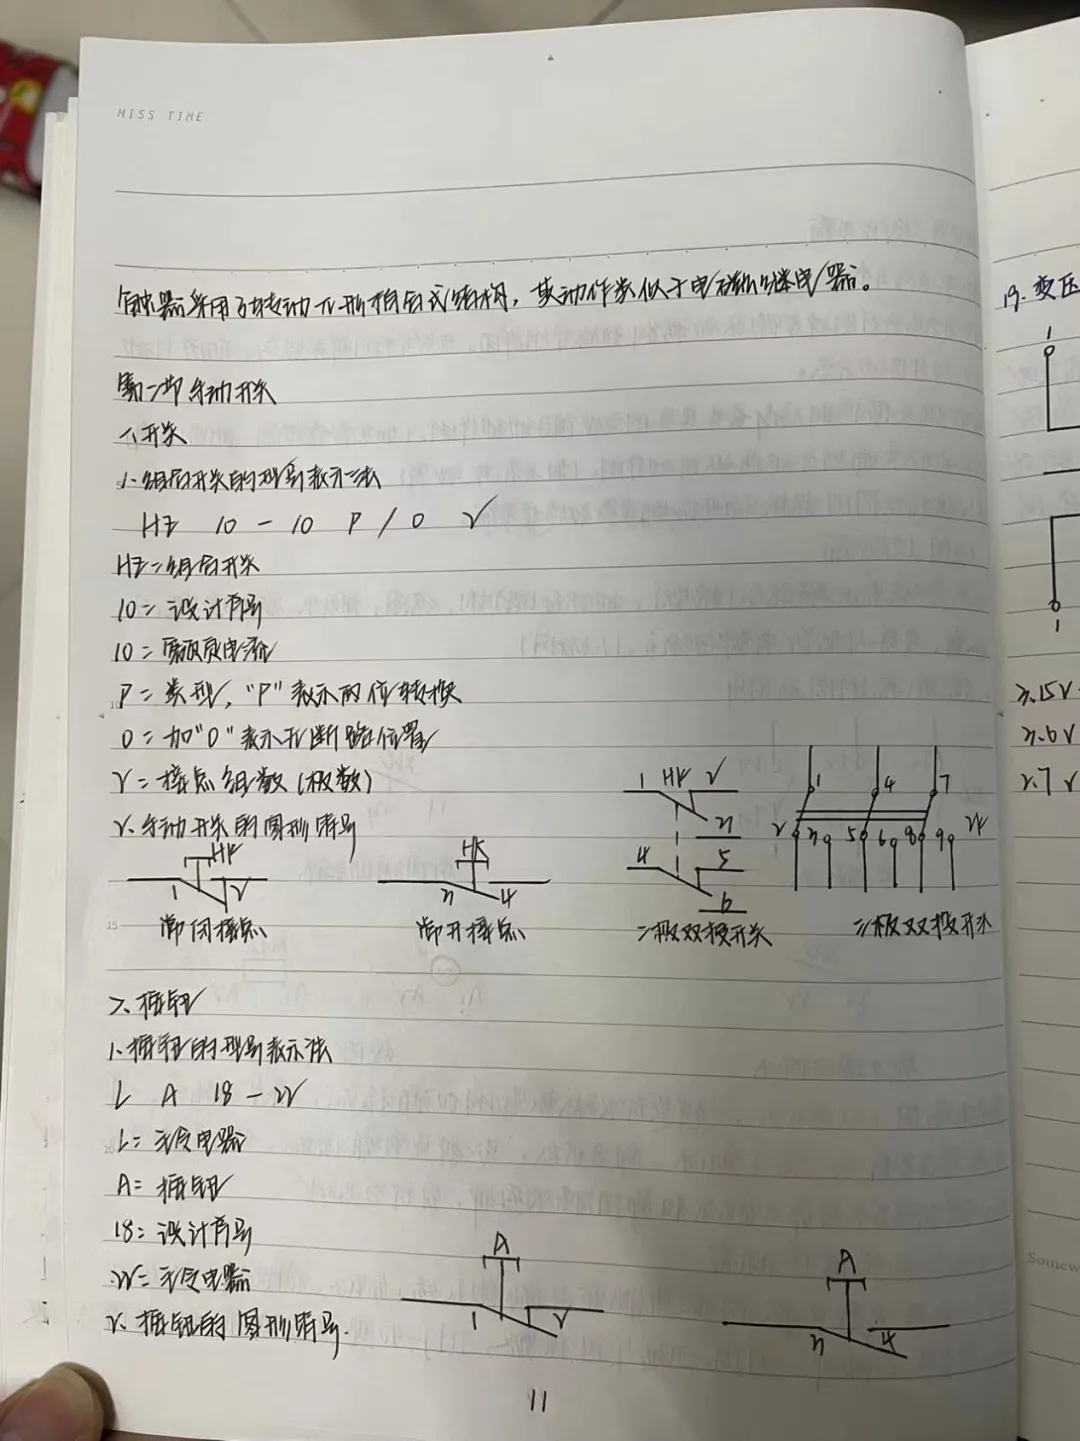 MISS TIME
触器采用了转动衔铁组合式结构，其动作类似于电磁继电器。
第二节 手动开关
一、开关
1、组合开关的型号表示法
HZ 10 - 10 P / 0 2
HZ = 组合开关
10 = 设计序号
10 = 额定电流
P = 类型，"P"表示两位转换
0 = 加"0"表示开断路位置
2 = 接点组数（极数）
2、手动开关的图形符号
HK
1 2
常闭接点
HK
3 4
常开接点
1 HK 2
3
4 5
6
二极双投开关
1 4 7
2 3 5 6 8 9
三极双投开关
二、按钮
1、按钮的型号表示法
L A 18 - 22
L = 主令电器
A = 按钮
18 = 设计序号
22 = 主令电器
2、按钮的图形符号.
A
1 2
A
3 4
11
19. 变压
1
1
2.15V
2.6V
2.7V
Somew